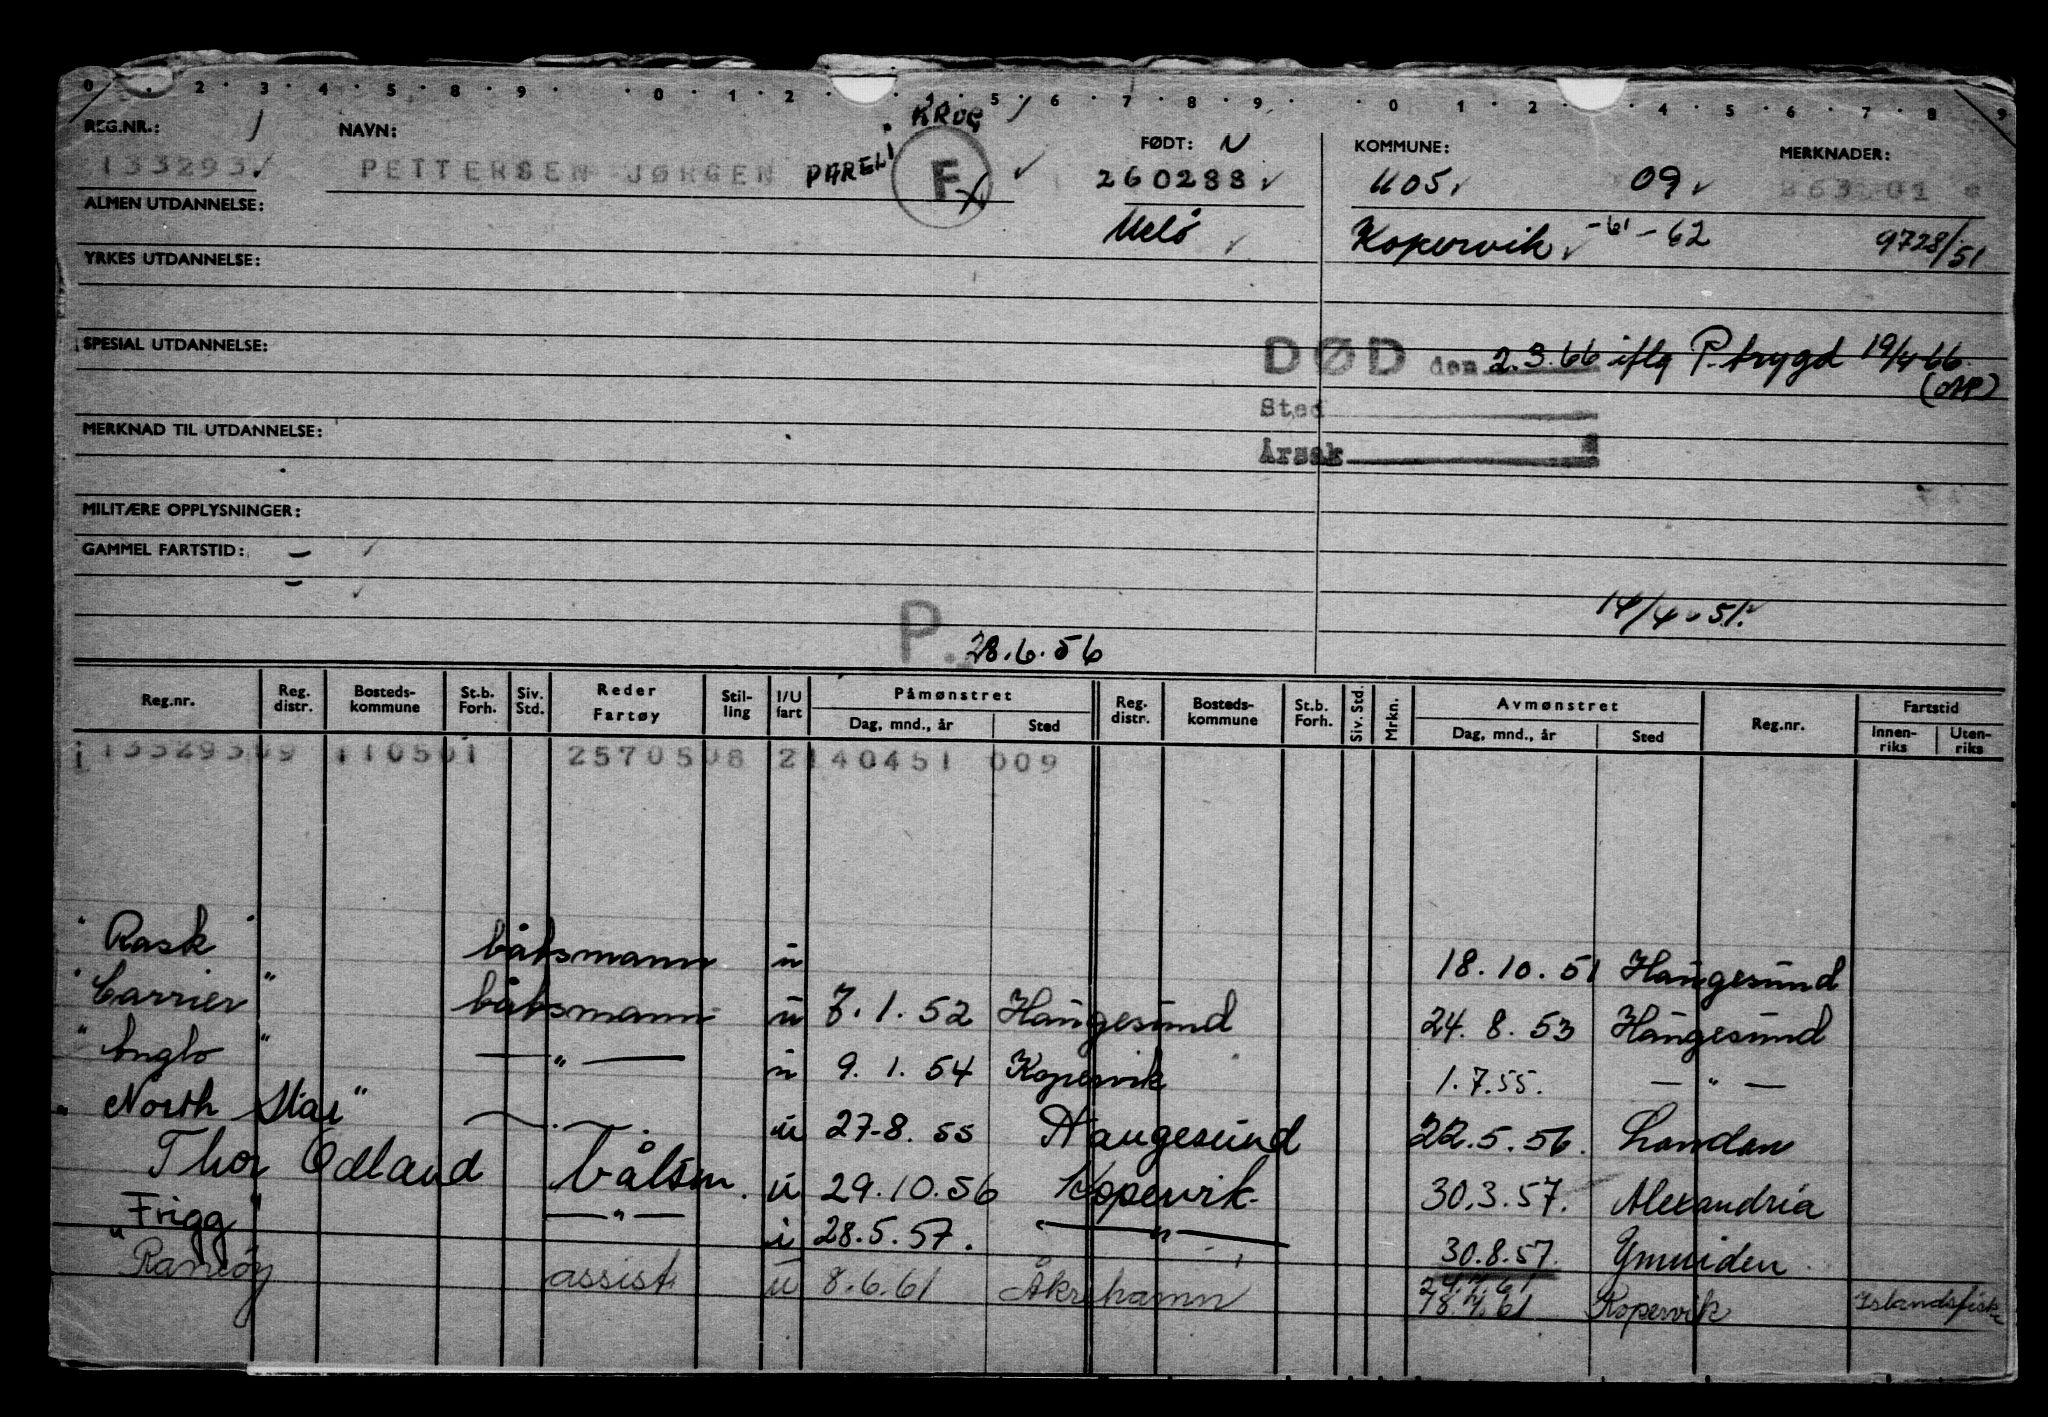 0 · 2 · 3 · 4 · 5 · 8 · 9 · 0 · 1 · 2 · 4 · 5 · 6 · 7 · 8 · 9 · 0 · 1 · 2 · 4 · 5 · 6 · 7 · 8 · 9
REG.NR.: NAVN: KROG FØDT: N KOMMUNE: MERKNADER:
133293 PETTERSEN JØRGEN PARELI F 260288 1105 09 863 01
ALMEN UTDANNELSE: Melö Kopervik -61-62 9728/51
YRKES UTDANNELSE:
SPESIAL UTDANNELSE: DØD den 2.3.66 iflg P.trygd 19/4 66.
Sted
MERKNAD TIL UTDANNELSE:
Årsak
MILITÆRE OPPLYSNINGER:
GAMMEL FARTSTID: —
—
14/4-51.
P. 28.6.56
Reg.nr. Reg. distr. Bosteds-kommune St.b. Forh. Siv. Std. Reder Fartøy Stil-ling I/U fart Påmønstret Dag, mnd., år Sted Reg. distr. Bosteds-kommune St.b. Forh. Siv. Std. Mrkn. Avmønstret Dag, mnd., år Sted Reg.nr. Fartstid Innen-riks Uten-riks
13329309 110501 2570508 2140451 009
" Rask " båtsmann u 18.10.51 Haugesund
" Carrier " båtsmann u 7.1.52 Haugesund 24.8.53 Haugesund
" Anglo " — " — u 9.1.54 Kopervik 1.7.55. — " —
" North Star " u 27-8.55 Haugesund 22.5.56. London
Thor Odland båtsm. u 29.10.56 Kopervik. 30.3.57. Alexandria
" Frigg " — " — i 28.5.57. — " — 30.8.57. Ymuiden
Ramöy assist. u 8.6.61 Åkrehamn 18.7.61 Kopervik Islandsfiske